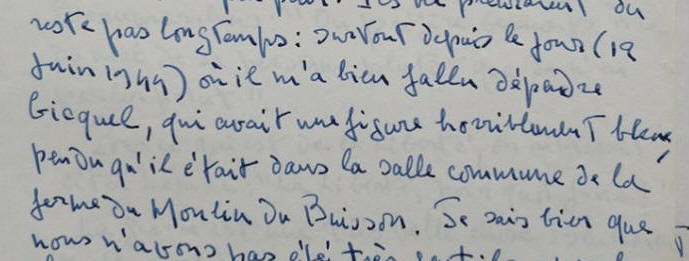 du
reste pas longtemps : surtout depuis le jour (19
Juin 1944) où il m'a bien fallu dépendre
Gicquel, qui avait une figure horriblement bleue,
pendu qu'il était dans la salle commune de la
ferme du Moulin du Buisson. Je sais bien que
nous n'avons pas été très